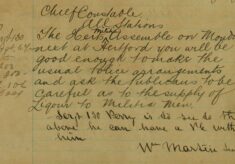 Chief Constable
All Stations
The Herts Militia assemble on Mond
next at Hertford you will be
good enough to make the
usual police arrangements
and ask the publicans to be
careful as to the supply of
Liquor to Militia Men.
Sergt 130 Berry is to see to the
above he can have a PC with
him
Wm Martin